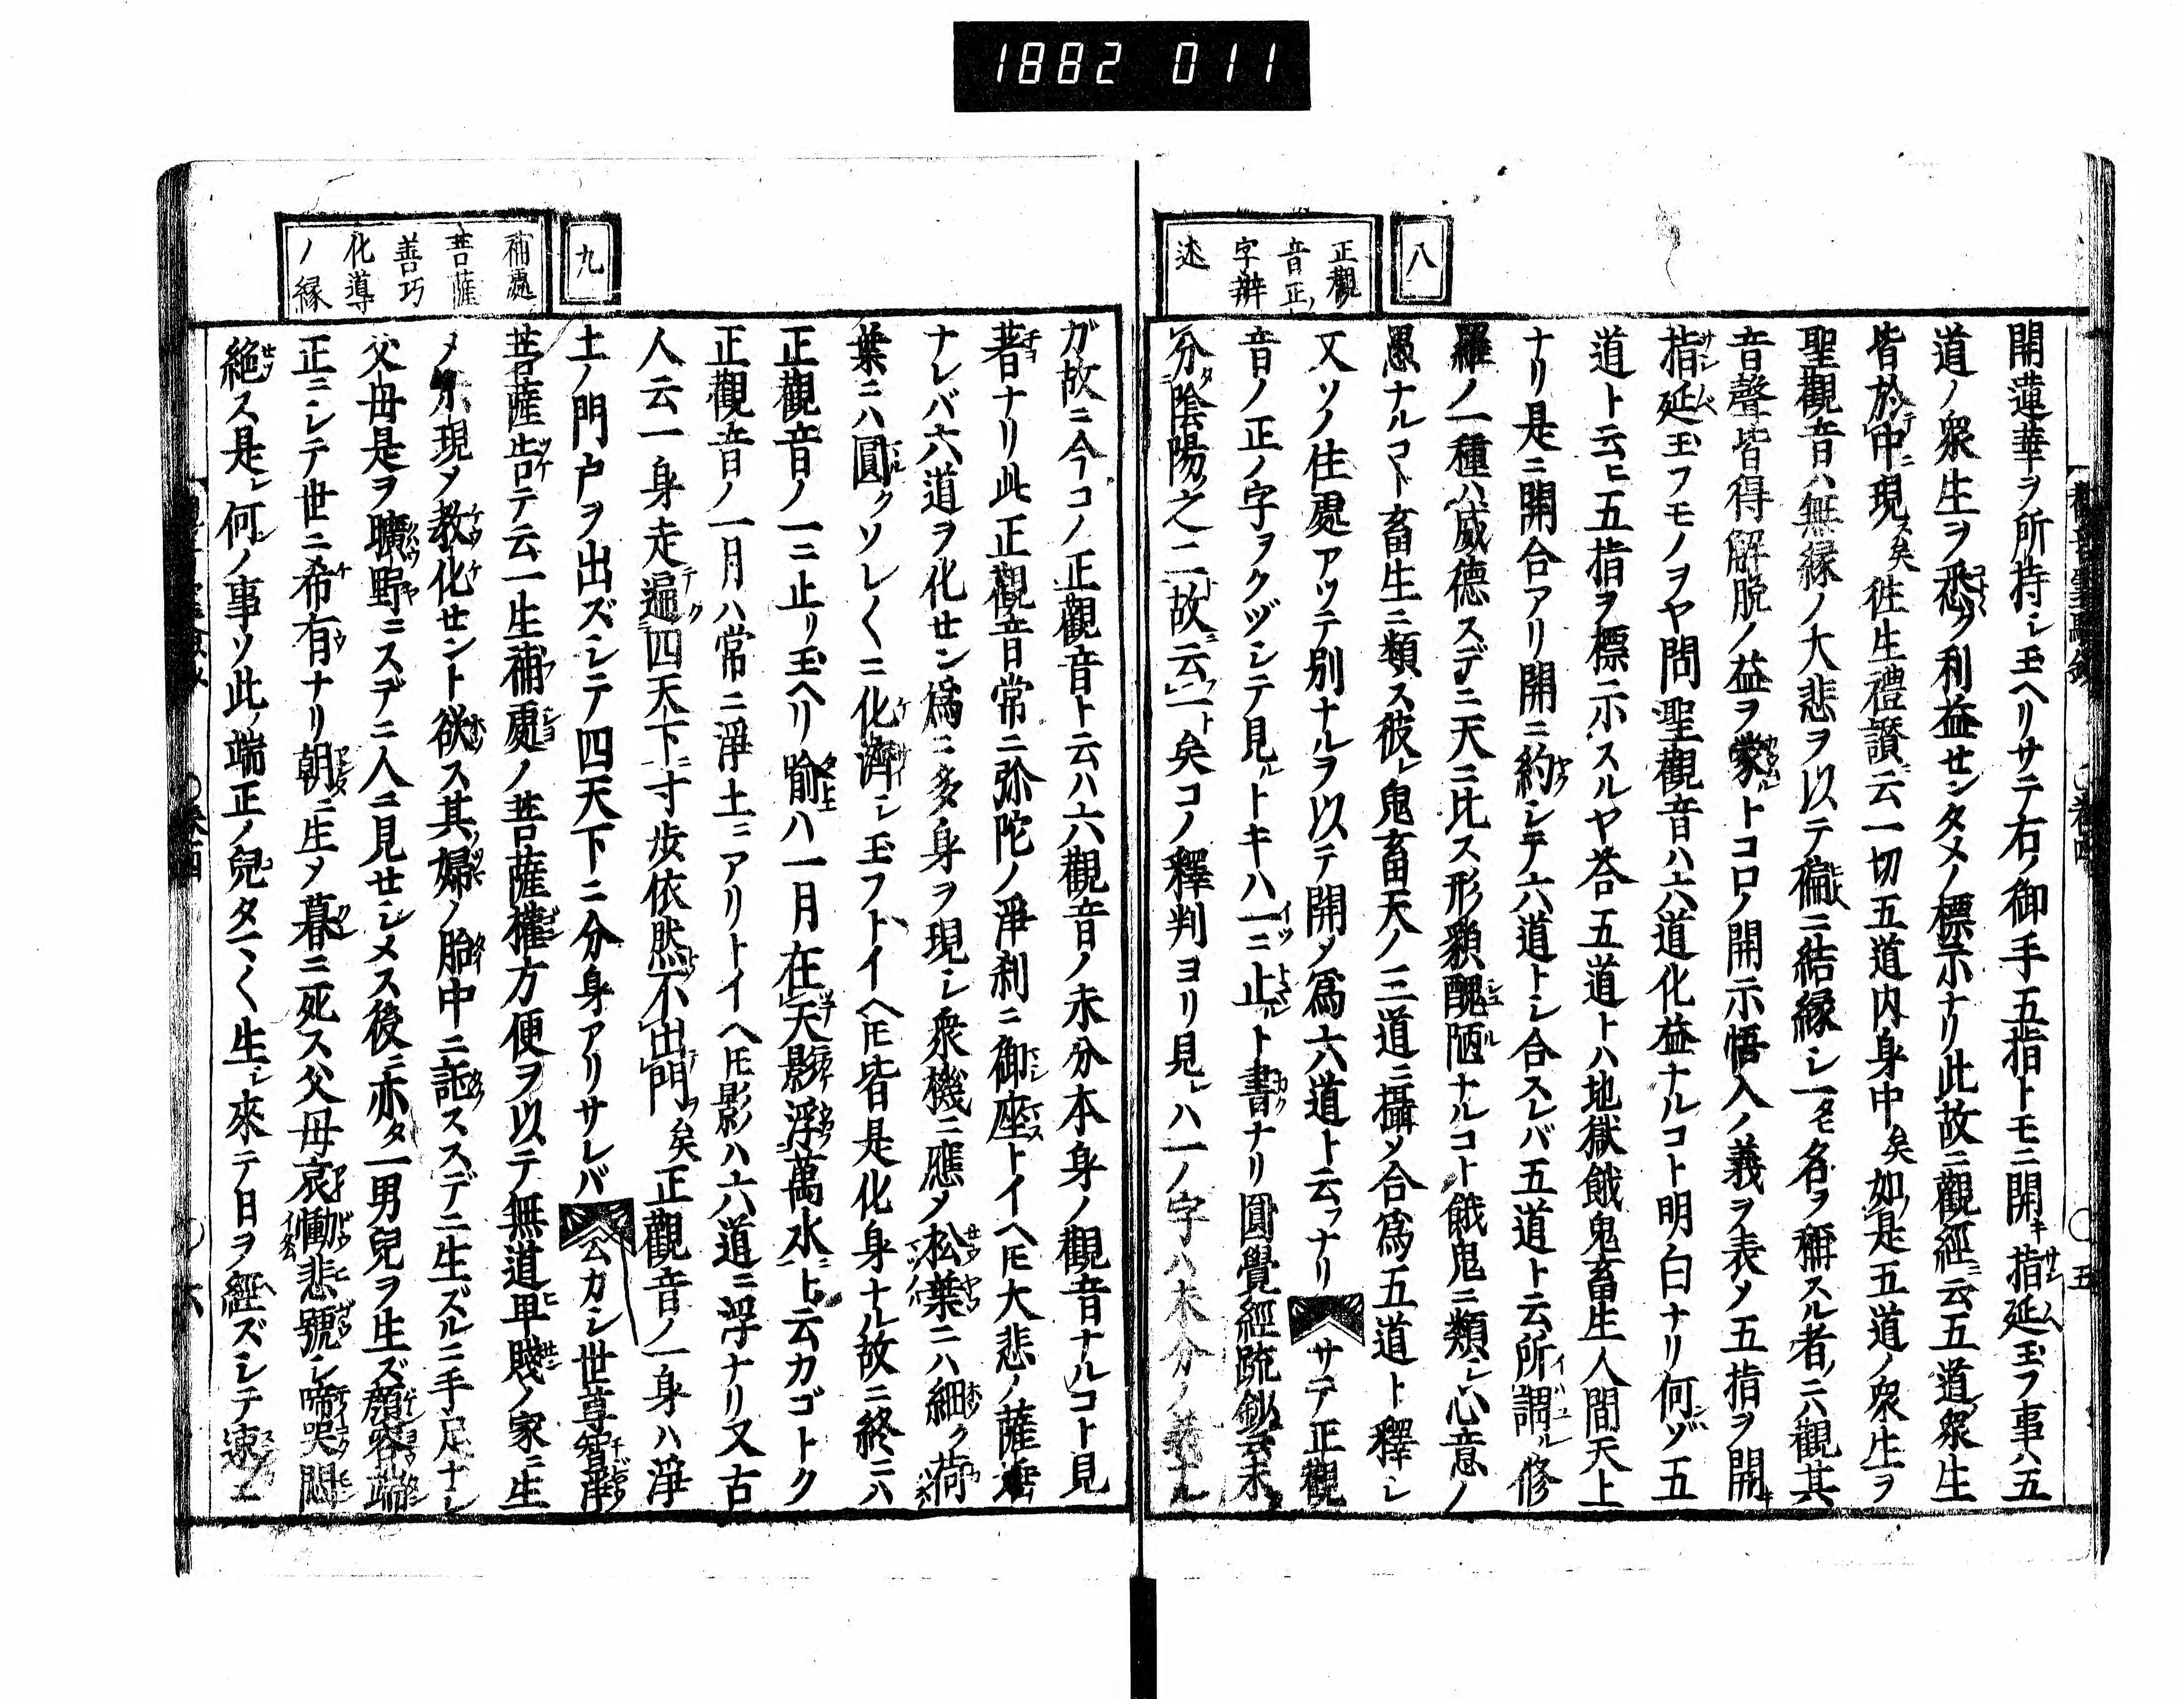 1882 011
八
正觀
音正ノ
字辨
述
開蓮華ヲ所持シ玉ヘリサテ右ノ御手五指トモニ開キ指延玉フ事ハ五
道ノ衆生ヲ悉ク利益センタメノ標示ナリ此故ニ觀經ニ云五道ノ衆生
皆於中現ス矣徃生禮讃ニ云一切五道内身中矣如是五道ノ衆生ヲ
聖觀音ハ無縁ノ大悲ヲ以テ徧ニ結縁シ一タモ名ヲ稱スル者ノニハ觀其
音聲皆得解脱ノ益ヲ蒙ルトコロノ開示悟入ノ義ヲ表メ五指ヲ開キ
指延玉フモノヲヤ問聖觀音ハ六道化益ナルコト明白ナリ何ゾ五
道ト云ヒ五指ヲ標示スルヤ答五道トハ地獄餓鬼畜生人間天上
ナリ是ニ開合アリ開ニ約シテ六道トシ合スレバ五道ト云所謂ル修
羅ノ一種ハ威德スデニ天ニ比ス形貌醜陋ナルコト餓鬼ニ類シ心意ノ
愚ナルコト畜生ニ類ス彼レ鬼畜天ノ三道ニ攝メ合爲五道ト釋シ
又ソノ住處アツテ別ナルヲ以テ開メ爲六道ト云フナリサテ正觀
音ノ正ノ字ヲクヅシテ見ルトキハ一ニ止ルト書ナリ圓覺經疏鈔云未
分陰陽之二故ニ云一ト矣コノ釋判ヨリ見レハ一ノ字ハ未分ノ義ナル
九
補處
菩薩
善巧
化導
ノ縁
ガ故ニ今コノ正觀音ト云ハ六觀音ノ未分本身ノ觀音ナルコト見
著ナリ此正觀音常ニ弥陀ノ淨刹ニ御座トイヘ𪜈大悲ノ薩埵
ナレバ六道ヲ化セン爲ニ多身ヲ現シ衆機ニ應メ松葉ニハ細ク荷
葉ニハ圓クソレ〱ニ化濟シ玉フトイヘ𪜈皆是化身ナル故ニ終ニハ
正觀音ノ一ニ止リ玉ヘリ喻ハ一月在天影浮萬水ニト云カゴトク
正觀音ノ一月ハ常ニ淨土ニアリトイヘ𪜈影ハ六道ニ浮ナリ又古
人云一身走遍四天下ニ寸歩依然不出門ヲ矣正觀音ノ一身ハ淨
土ノ門戸ヲ出ズシテ四天下ニ分身アリサレバ厶カシ世尊智淨
菩薩告テ云一生補處ノ菩薩權方便ヲ以テ無道卑賤ノ家ニ生
メ示現メ教化セント欲ス其ノ婦ノ胎中ニ託ススデニ生ズルニ手足ナシ
父母是ヲ曠野ニスデニ人ニ見セシメス後ニ亦タ一男兒ヲ生ズ顔容端
正ニシテ世ニ希有ナリ朝ニ生メ暮ニ死ス父母哀慟悲號シ啼哭悶
絶ス是レ何ノ事ソ此ノ端正ノ兒タマ〱生レ來テ日ヲ經ズシテ速ニ